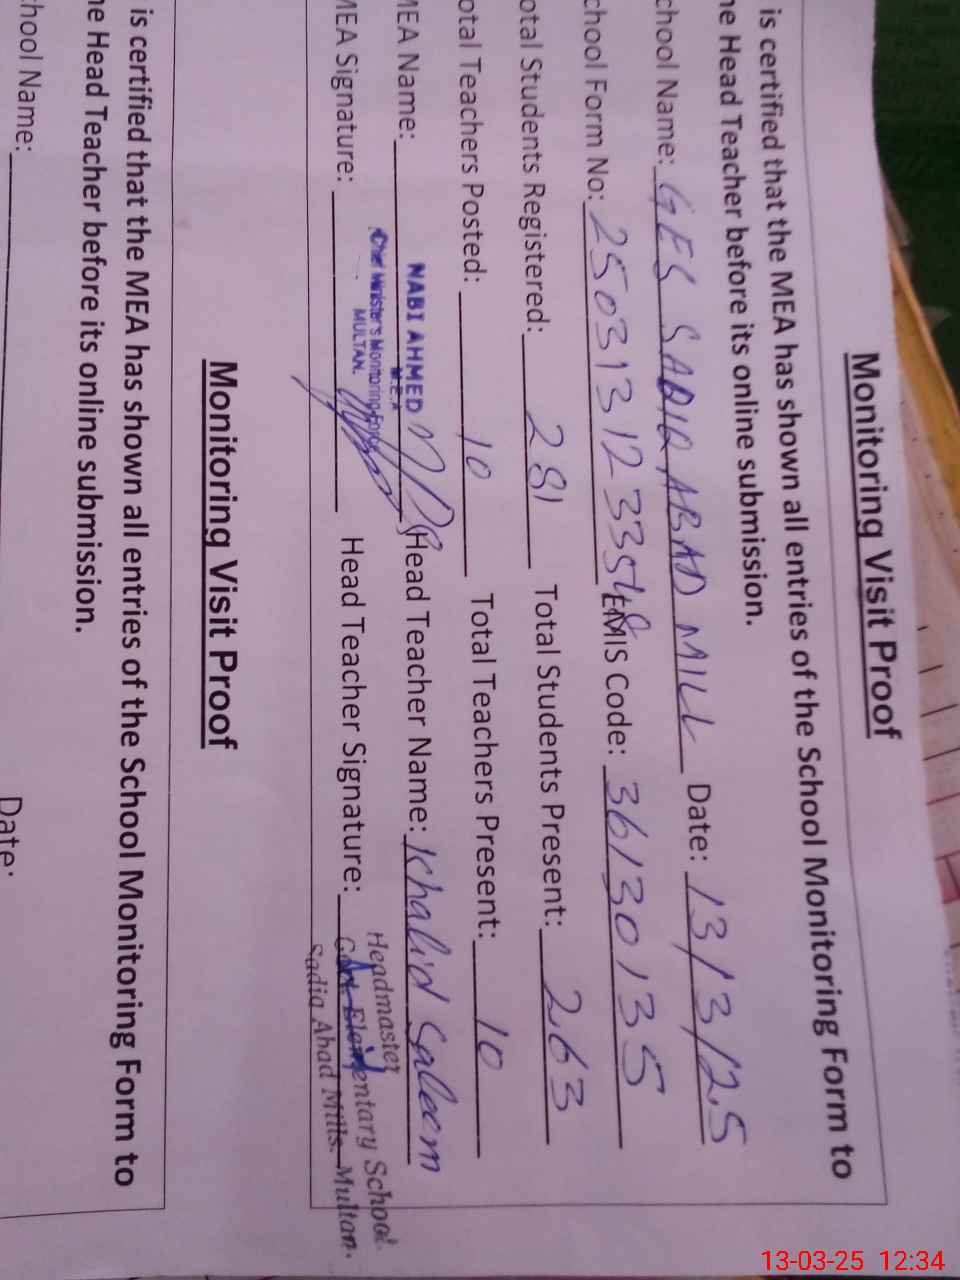 Monitoring Visit Proof
is certified that the MEA has shown all entries of the School Monitoring Form to
he Head Teacher before its online submission.
chool Name: GES SADIQ ABAD MILL Date: 13/3/25
chool Form No: 2503131233548 EMIS Code: 36130135
otal Students Registered: 281 Total Students Present: 263
otal Teachers Posted: 10 Total Teachers Present: 10
MEA Name: NABI AHMED Head Teacher Name: Khalid Saleem
M.E.A
Chief Minister's Monitoring Force
MULTAN.
MEA Signature: Head Teacher Signature:
Headmaster
Govt. Elementary School
Sadiq Abad Mills. Multan.
Monitoring Visit Proof
is certified that the MEA has shown all entries of the School Monitoring Form to
he Head Teacher before its online submission.
chool Name: Date:
13-03-25 12:34